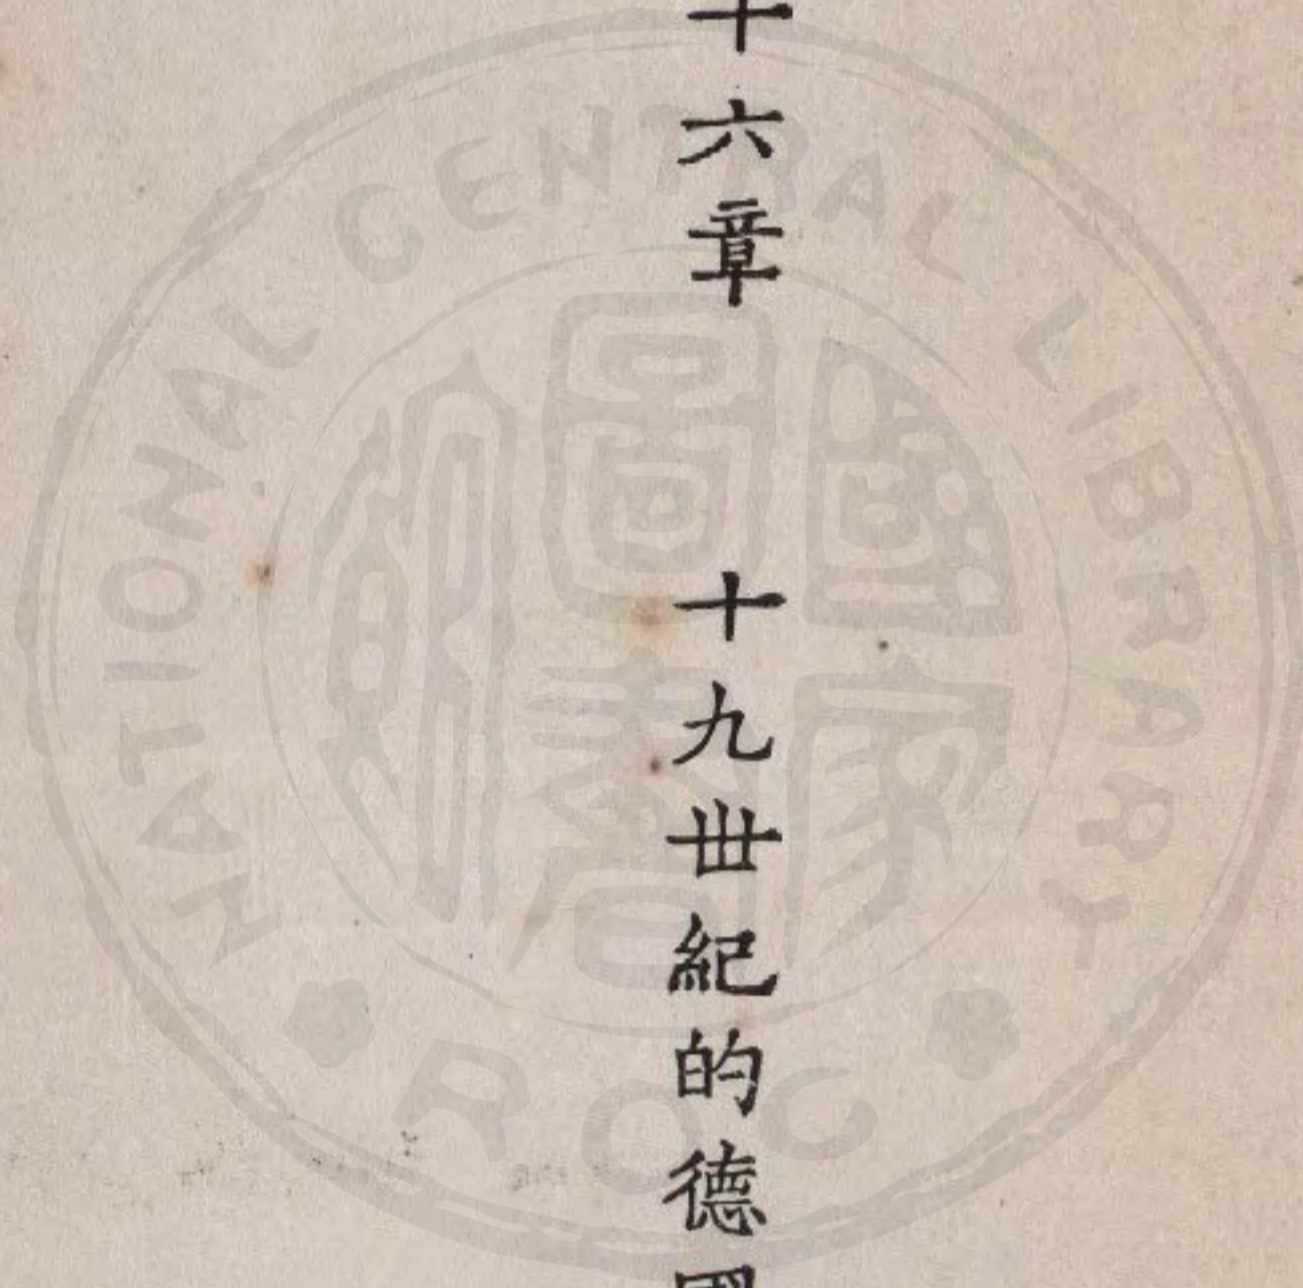 十六章 十九世紀的德國
NATIONAL CENTRAL LIBRARY
ROC
國家圖書館